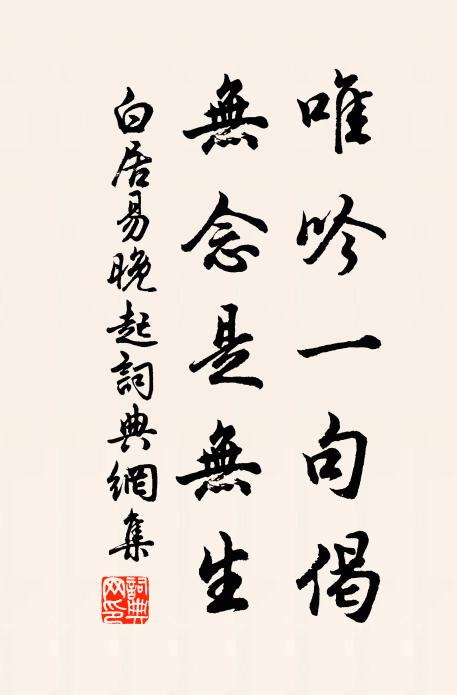 唯吟一句偈
無念是無生
白居易晚起詞典網集
詞典網印